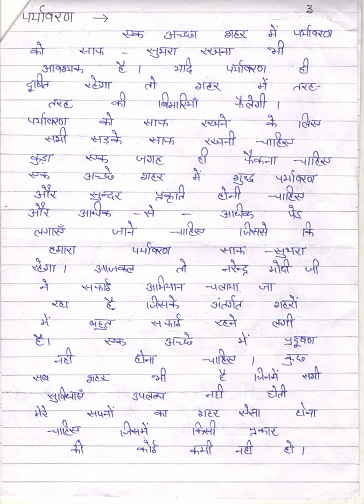 3
पर्यावरण →
एक अच्छा शहर में पर्यावरण
को साफ - सुथरा रखना भी
आवश्यक है । यदि पर्यावरण ही
दूषित रहेगा तो शहर में तरह-
तरह की बिमारियाँ फैलेगी ।
पर्यावरण को साफ रखने के लिए
सभी सड़के साफ रखनी चाहिए
कुडा एक जगह ही फैकना चाहिए
एक अच्छे शहर में शुद्ध पर्यावरण
और सुन्दर प्रकृति होनी चाहिए
और अधिक - से - अधिक पेड़
लगाएँ जाने चाहिए जिससे कि
हमारा पर्यावरण साफ - सुथरा
रहेगा । आजकल तो नरेन्द्र मोदी जी
ने सफाई अभियान चलाया जा
रहा है, जिसके अंतर्गत शहरों
में बहुत सफाई रहने लगी
है। एक अच्छे में प्रदूषण
नही होना चाहिए । कुछ
सब शहर भी है जिनमें सभी
सुविधाएँ उपलब्ध नही होती
मेरे सपनों का शहर ऐसा होना
चाहिए जिसमें किसी प्रकार
की कोई कमी नही हो ।